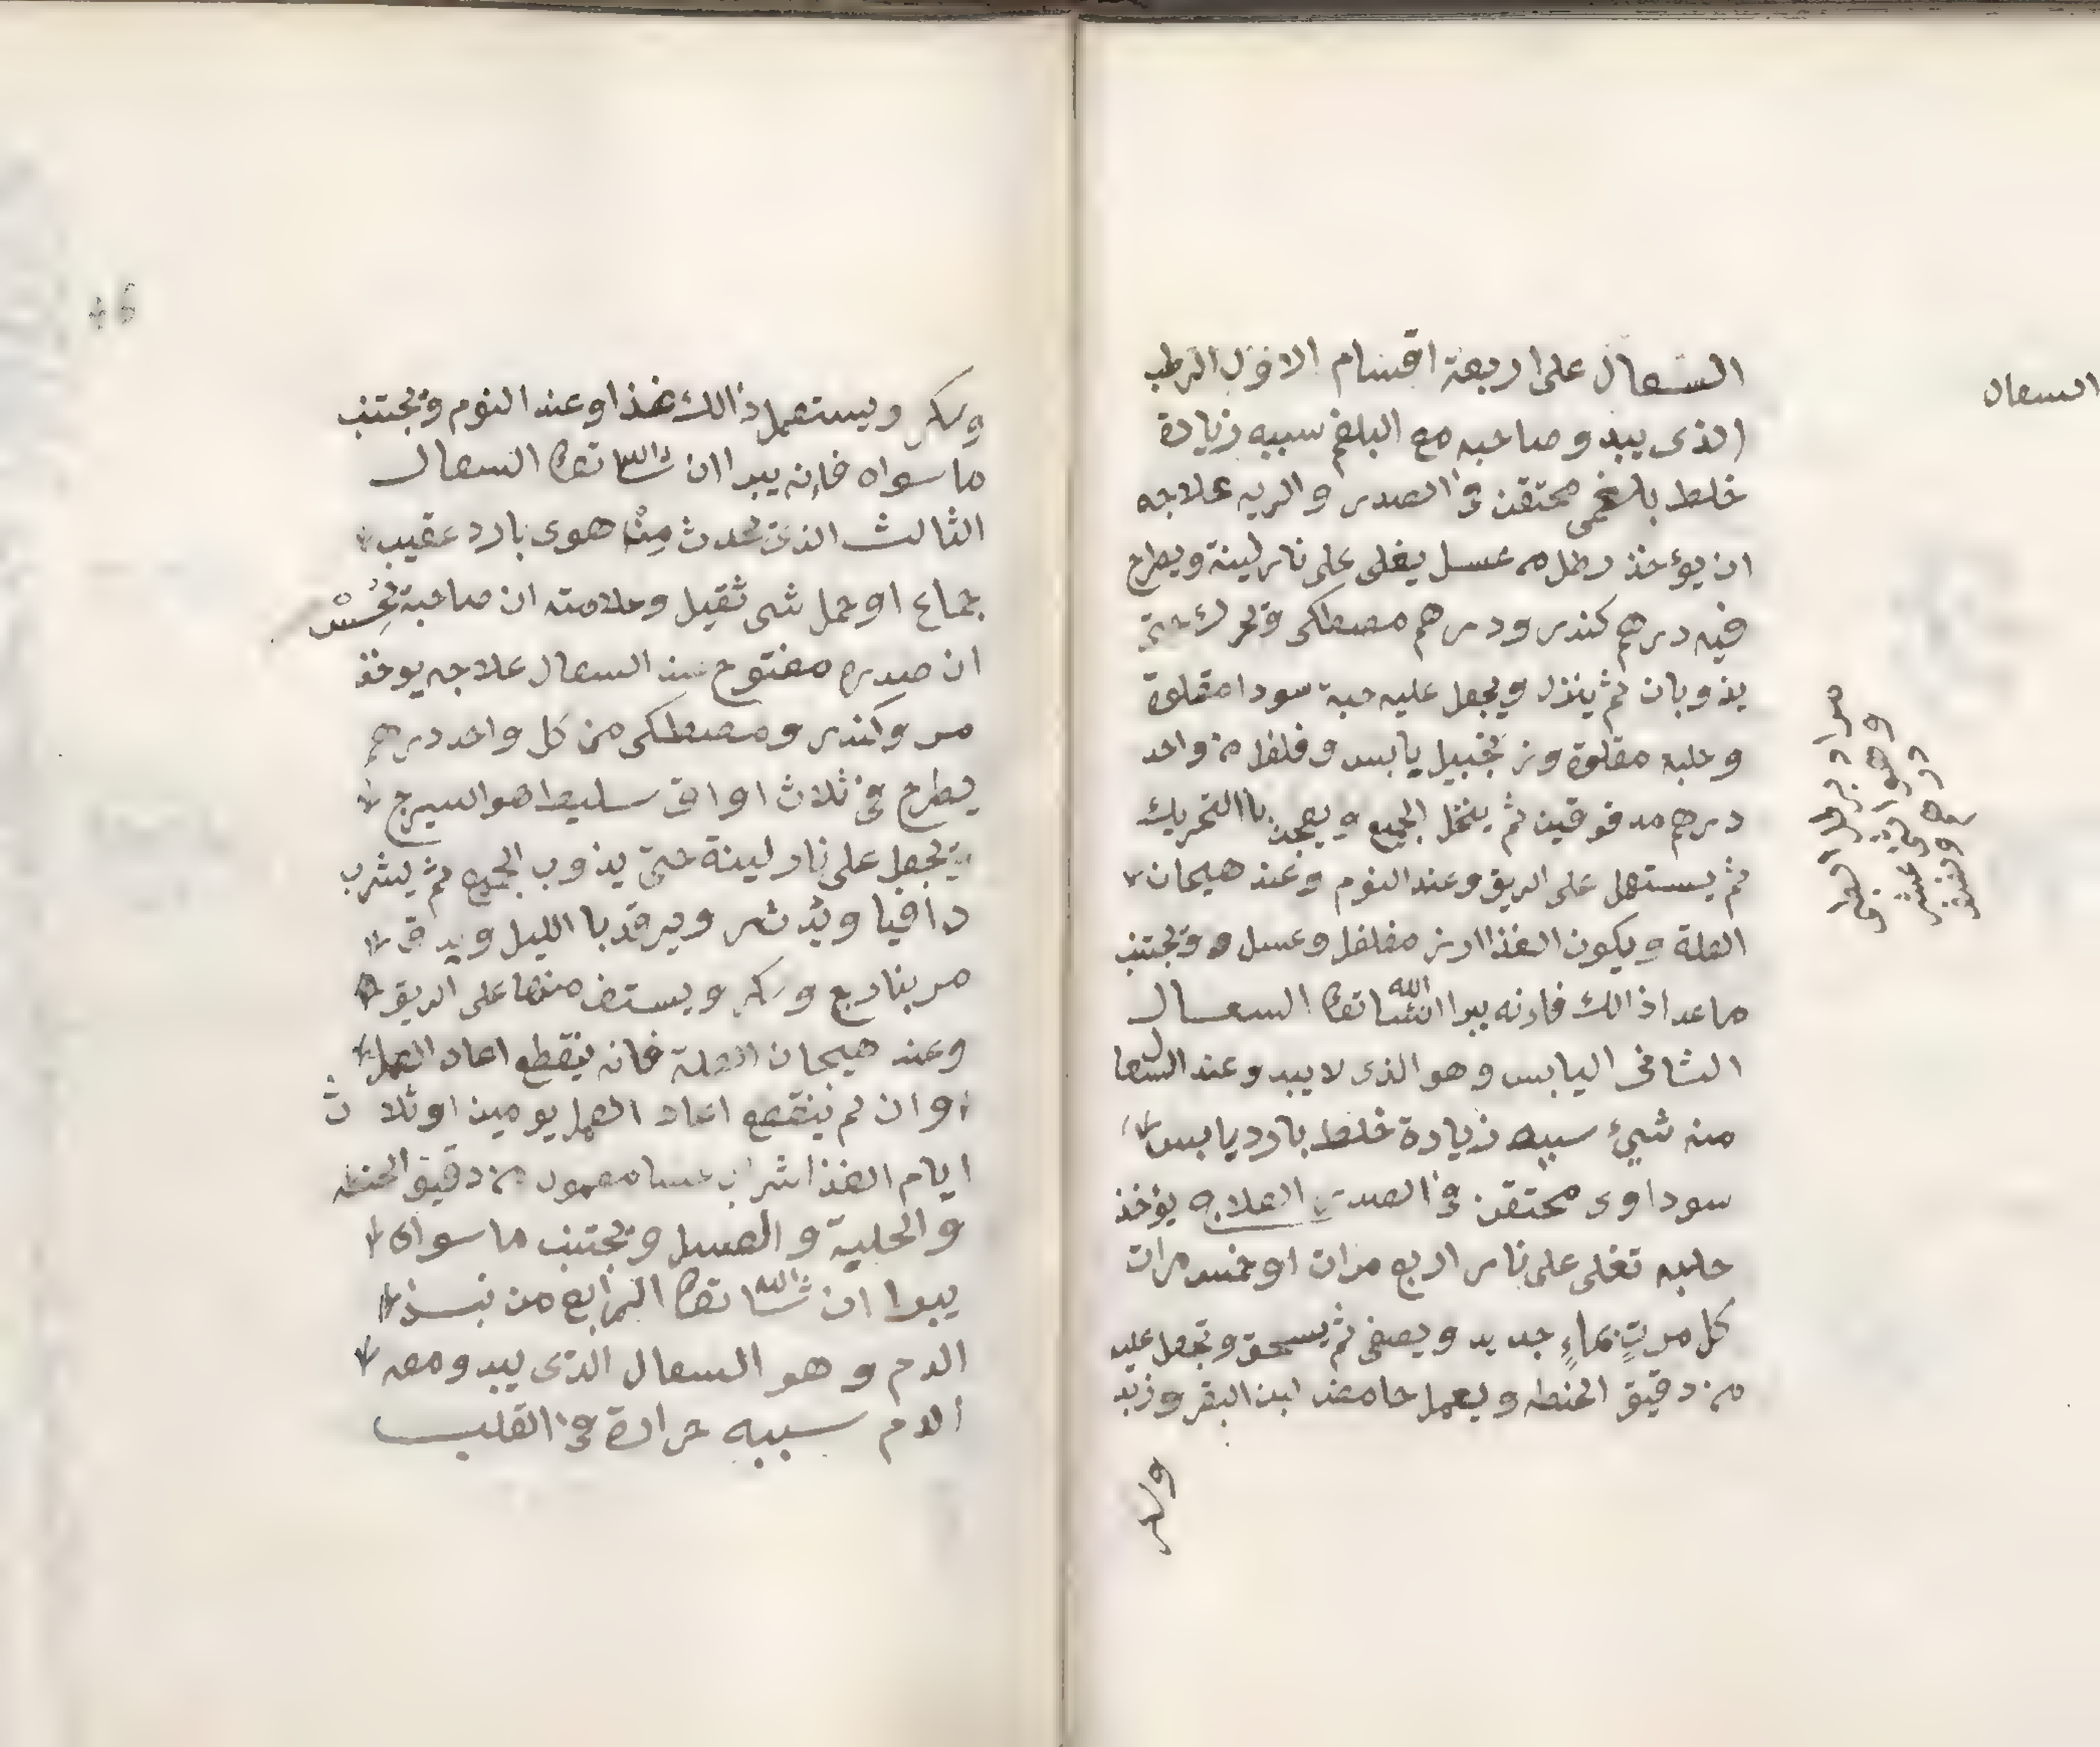 السعال
السعال على اربعة اقسام الاول الرطب
الذى يبدو صاحبه مع البلغم سببه زيادة
خلط بلغمى محتقن فى الصدر والريه علاجه
ان يؤخذ رطل عسل يغلى على نار لينة ويطرح
فيه درهم كندر ودرهم مصطكى ويحرك حتى
يذوبان ثم ينزل ويجعل عليه حبة سودا مقلوة
وحلبه مقلوة وزنجبيل يابس وفلفل من واحد
درهم مدقوقين ثم ينخل الجميع ويعجن باالتحريك
ثم يستعمل على الريق وعند النوم وعند هيجان
العلة ويكون الغذا ارز مفلفل وعسل ويجتنب
ماعدا ذالك فانه يبرا انشا الله تعا السعال
الثانى اليابس وهو الذى لا يبدو عند السعال
منه شيئ سببه زيادة خلط بارد يابس
سوداوى محتقن فى الصدر العلاج يؤخذ
حلبه تغلى على نار اربع مرات او خمس مرات
كل مرتٍ بماءٍ جديد ويصفى ثم يسحق ويجعل عليه
من دقيق الحنطه ويعمل حامض لبن البقر وزبد
وسكر
وسكر ويستعمل ذالك غذا وعند النوم ويجتنب
ما سواه فإنه يبرا ان شا الله تعا السعال
الثالث الذى يحدث مِنْ هوى بارد عقيب
جماع او حمل شى ثقيل وعلامته ان صاحبة يُحِسْ
ان صدره مفتوح عند السعال علاجه يوخذ
مر وكندر ومصطكى من كل واحد درهم
يطرح فى ثلاث اواق سليط اهو السيرج
يجعل على نار لينة حتى يذوب الجميع ثم يشرب
دافيا ويدثر ويرقد با الليل ويدق
مر بنا ربع وسكر ويستف منها على الريق
وعند هيجان العلة فانه ينقطع اعاد العمل
وان لم ينقطع اعاد العمل يومين او ثلاث
ايام الغذا شراب حسا معمول من دقيق الحنطه
والحلبة والعسل ويجتنب ما سواه
يبرا ان شا الله تعا الرابع من
الدم وهو السعال الذى يبدو معه
الدم سببه حرارة فى القلب